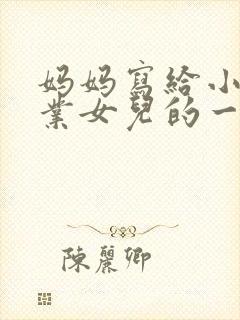 妈妈寫給小
業女兒的一
陳麗卿